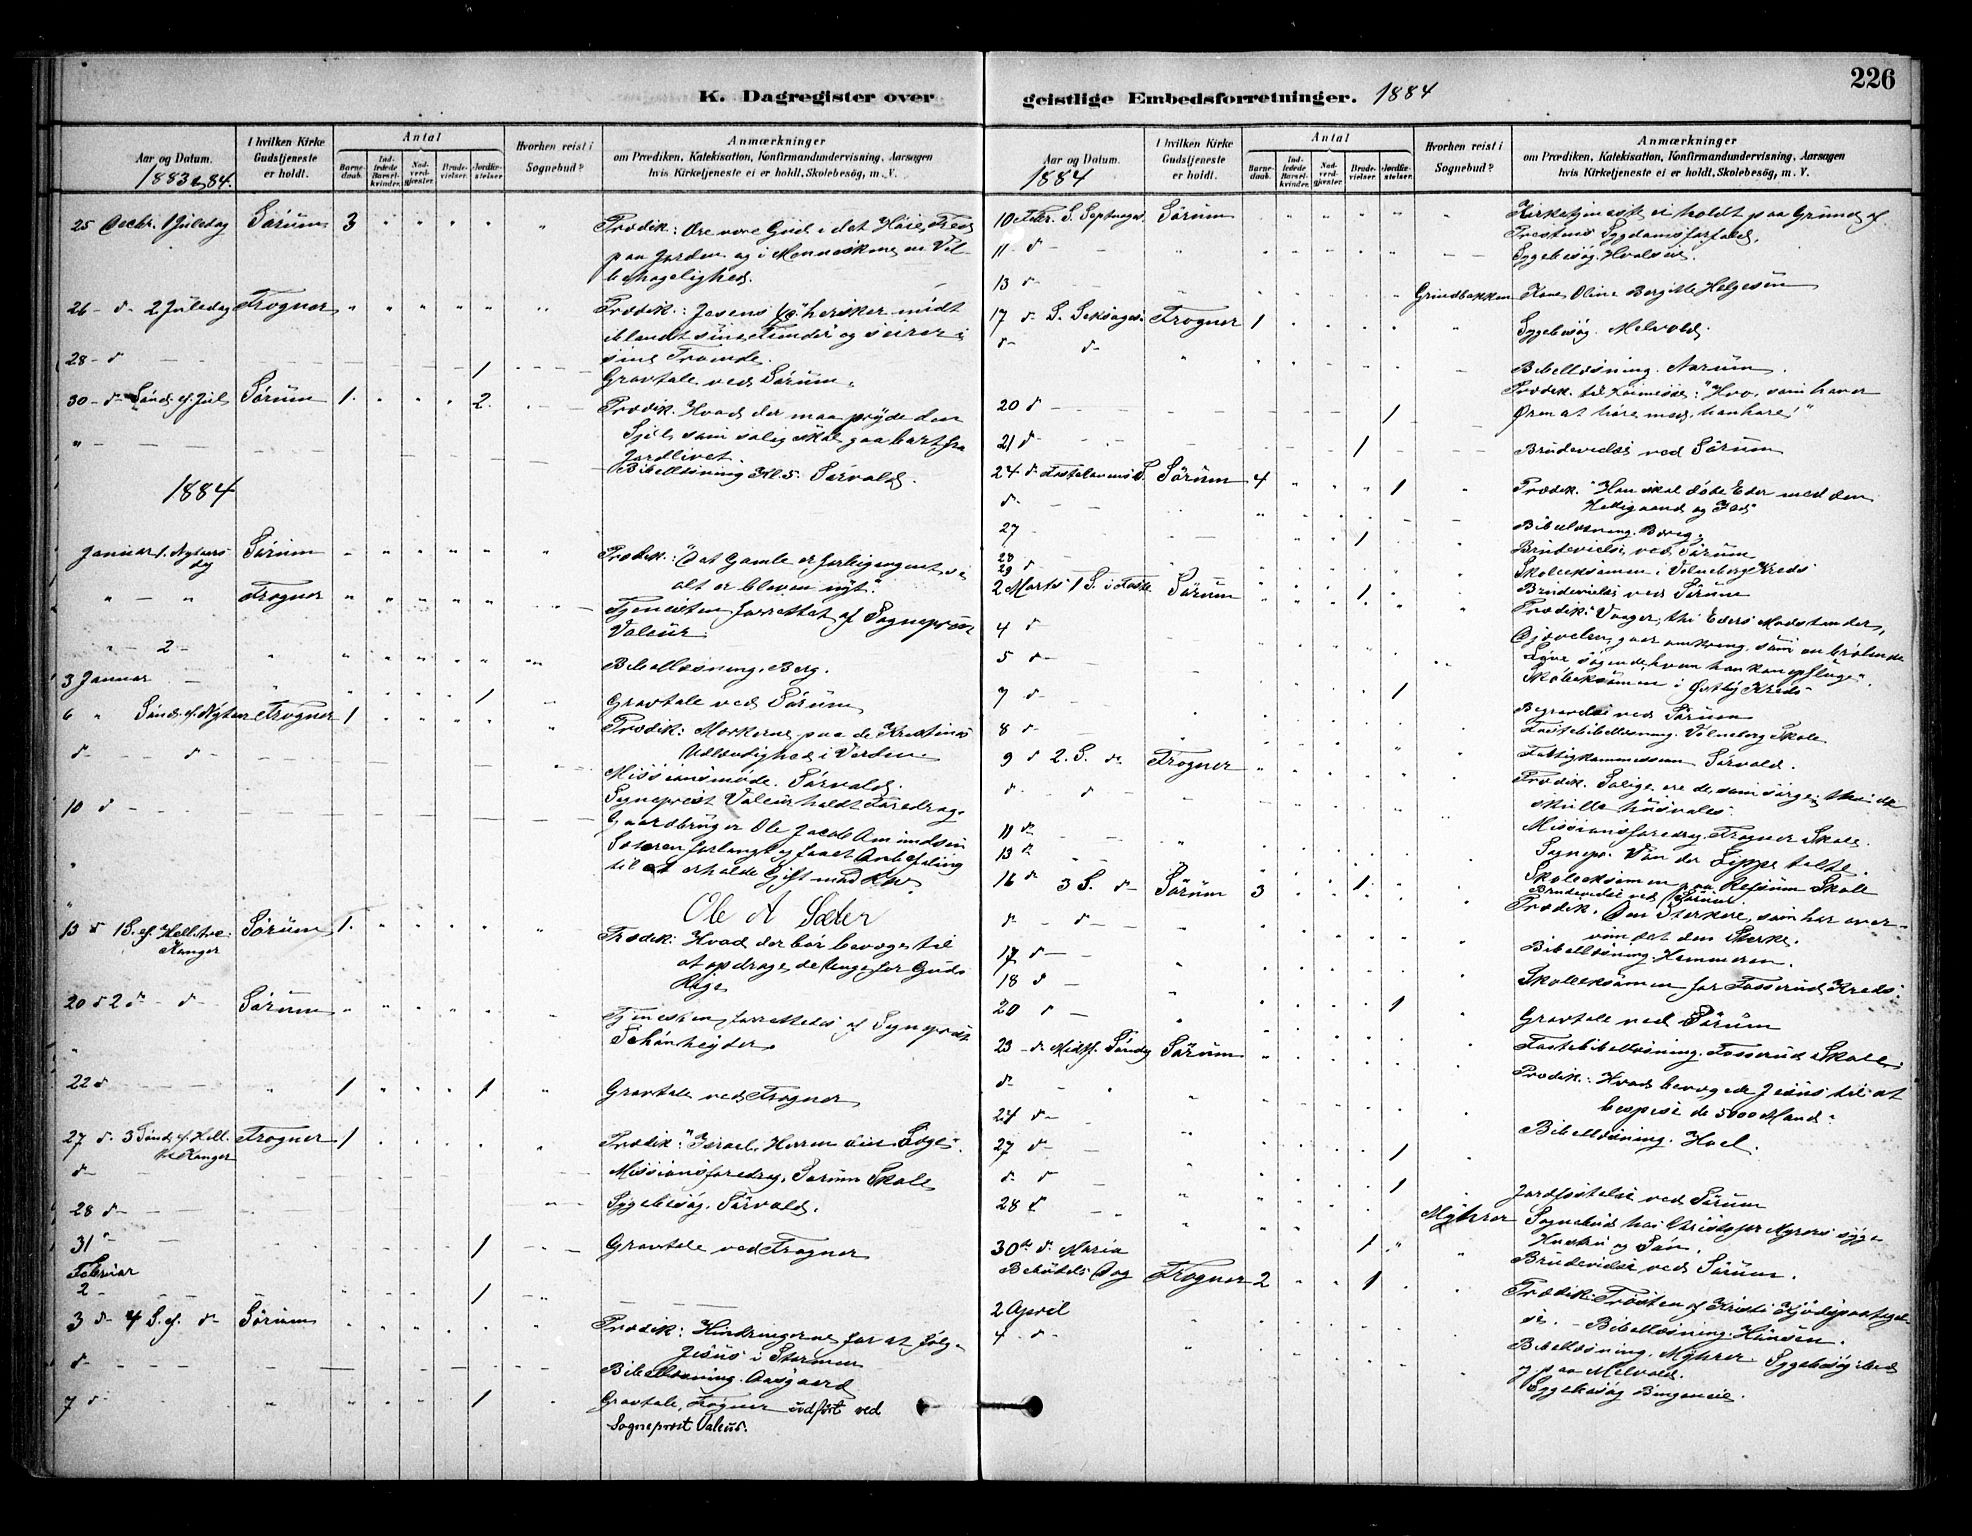 226
K. Dagregister over
geistlige Embedsforretninger. 1884
Aar og Datum.
1883 og 84.
I hvilken Kirke Gudstjeneste er holdt.
Antal
Barnedaab.
Indledede Barselkvinder.
Nadverdgjester.
Brudevielser.
Jordfæstelser.
Hvorhen reist i Sognebud?
Anmærkninger
om Prædiken, Katekisation, Konfirmandundervisning, Aarsagen
hvis Kirketjeneste ei er holdt, Skolebesøg, m. V.
25 Decbr. 1 Juledag Sørum 3 Prædik: Ære være Gud i det Høie, Fred
paa Jorden og i Menneskene en Vel-
behagelighed.
26 d 2 Juledag Frogner Prædik: Jesus hersker midt
iblandt sine Fiender og seirer i
sine Troende.
28 d 1 Gravtale ved Sørum.
30 d Sønd. ef. Jul Sørum 1. 2. Prædik. Hvad der maa pryde den
Sjæl, som salig skal gaa bort fra
Jordlivet.
Bibellæsning Kl. 5. Sørvald.
1884
Januar 1. Nytaarsdag Sørum Prædik: "Det Gamle er forbigangent, se
alt er bleven nyt".
" - " Frogner Tjenesten forrettet af Sogneprest
Valeur.
" 2 - Bibellæsning. Berg.
3 Januar 1 Gravtale ved Sørum
6 " Sønd. ef. Nytaar Frogner 1 Prædik: Mærkerne paa de Kristnes
Udlændighed i Verden.
d d Missionsmøde. Sørvald.
Sogneprest Valeur holdt Foredrag.
10 d Gaardbruger Ole Jacob Amundsen
Sæteren forlangt og faaet Anbefaling
til at erholde Gift mod Ræv.
Ole A Sæter
13 d 1 S. ef. Hell. tre Konger Sørum 1. Prædik: Hvad der bør bevæge til
at opdrage de Unge for Guds
Rige
20 d 2 d d Sørum Tjenesten forrettedes af Sogneprest
Schønheyder.
22 d 1 1 Gravtale ved Frogner
27 d 3 Sønd. ef. Hell. tre Konger Frogner 1 Prædik: "Israel, Herren din Læge".
d Missionsforedrag. Sørum Skole
28 d Sygebesøg. Sørvald.
31 d 1 Gravtale ved Frogner
Februar
2 1
3 d 4 S. ef. d Sørum Prædik: Hindringerne for at følge
Jesus i Stormen
d Bibellæsning. Aasgaard
7 d 1 Gravtale, Frogner udført ved
Sogneprest Valeur.
Aar og Datum.
1884
I hvilken Kirke Gudstjeneste er holdt.
Antal
Barnedaab.
Indledede Barselkvinder.
Nadverdgjester.
Brudevielser.
Jordfæstelser.
Hvorhen reist i Sognebud?
Anmærkninger
om Prædiken, Katekisation, Konfirmandundervisning, Aarsagen
hvis Kirketjeneste ei er holdt, Skolebesøg, m. V.
10 Febr. S. Septuages. Sørum Kirketjeneste ei holdt paa Grund af
Prestens Sygdomsforfald.
11 d Sygebesøg. Hvalseie.
13 d Grindbakken Kone Oline Bergitte Helgesen
17 d S. Seksages. Frogner 1 Sygebesøg. Melvold.
d d Bibellæsning. Nørum.
Prædik. til Høimesse: "Hvo, som haver
20 d 1 Øren at høre med, han høre!"
21 d 1 Brudevielse ved Sørum
24 d Fastelavns S. Sørum 4 1 Prædik. "Han skal døbe Eder med den
Helligaand og Ild"
d Bibellæsning. Berg.
27 1 Brudevielse ved Sørum
28
29 d Skoleeksamen i Vølneberg Kreds
2 Marts 1 S. i Faste Sørum 1 Brudevielse ved Sørum
Prædik: "Vaager, thi Eders Modstander,
4 d Djævelen, gaar omkring som en brølende
5 d Løve, søgende hvem han kan opsluge".
Skoleeksamen i Østby Kreds
7 d 1 Begravelse ved Sørum
8 d Fastebibellæsning. Vølneberg Skole
9 d 2. S. d Frogner Fattigkommission Sørvald.
d d Prædik. Salige ere de som sørge, thi de
skulle husvales
11 d Missionsforedrag. Frogner Skole.
13 d Sognepr. Van der Lippe talte.
Skoleeksamen paa Refsum Skole
16 d 3 S. d Sørum 3 1 Brudevielse ved Sørum
d d Prædik. Den Stærkere, som har over-
vundet den Stærke.
17 d Bibellæsning. Hammeren.
18 d Skoleeksamen for Fosserud Kreds.
20 d 1 Gravtale ved Sørum
23 d Midtf. Søndag Sørum Fastebibellæsning. Fosserud Skole.
d Prædik: Hvad bevægede Jesus til at
bespise de 5000 Mand.
24 d Bibellæsning. Hoel.
27 d 1
d d 1 Jordfæstelse ved Sørum
28 d Myhrer Sognebud hos Christofer Myrers syge
Hustru og Søn.
30te d Maria 1 Brudevielse ved Sørum.
Bebudels. Dag Frogner 2 1 Prædik. Trøsten af Kristi Kjødspaatagel-
2 April se. - Bibellæsning. Hunsen.
4 d Bibellæsning. Myhrer Sygebesøg
og paa Melvold.
Sygebesøg